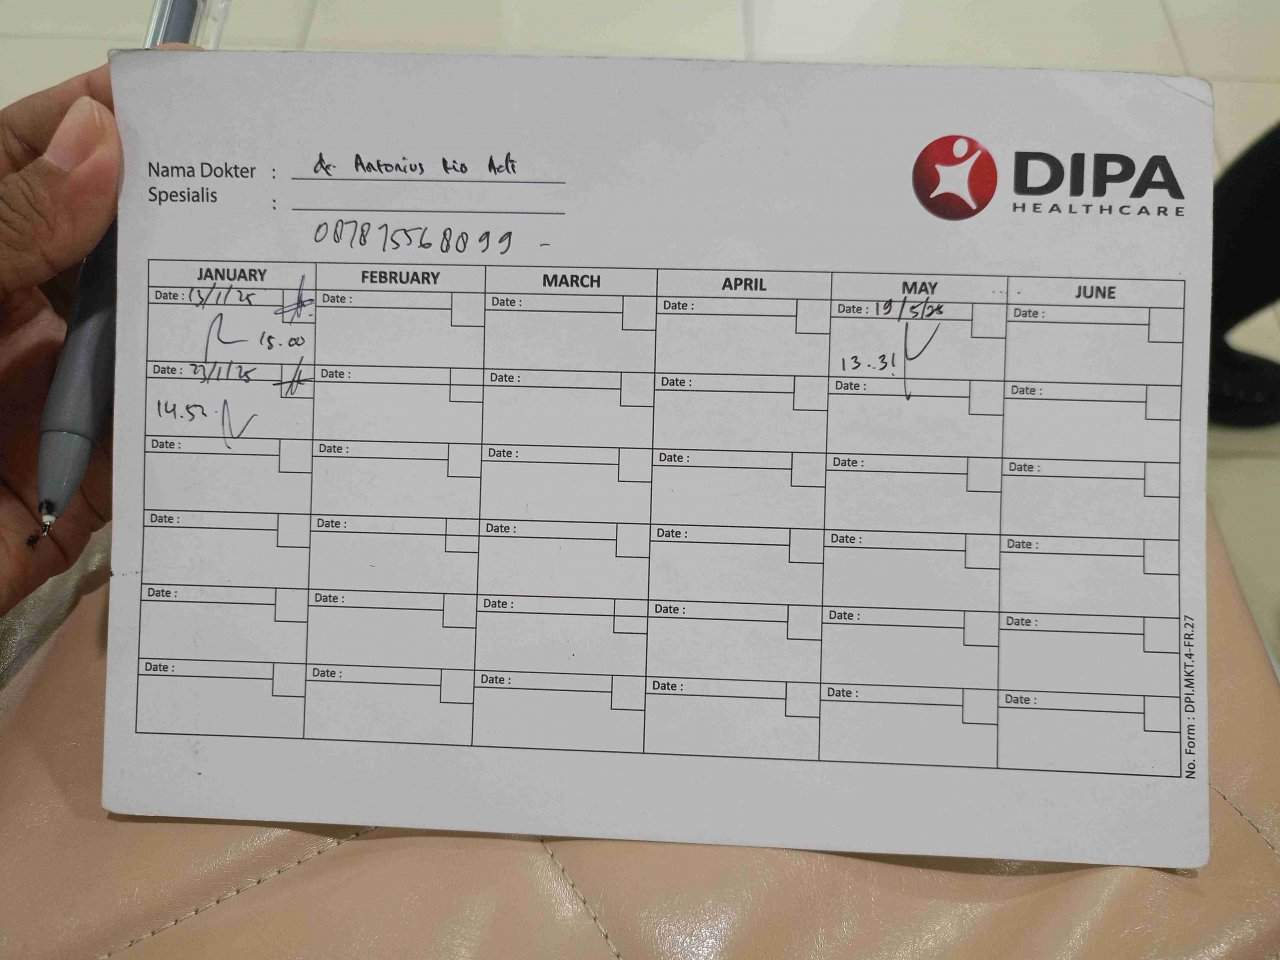 DIPA
HEALTHCARE
Nama Dokter : dr. Antonius Rio Adi
Spesialis :
087875568899 -
JANUARY FEBRUARY MARCH APRIL MAY JUNE
Date : 13/1/25 Date : Date : Date : Date : 19/5/25 Date :
15.00 13.31
Date : 23/1/25 Date : Date : Date : Date : Date :
14.52
Date : Date : Date : Date : Date : Date :
Date : Date : Date : Date : Date : Date :
Date : Date : Date : Date : Date : Date :
Date : Date : Date : Date : Date : Date :
No. Form : DPI.MKT.4-FR.27